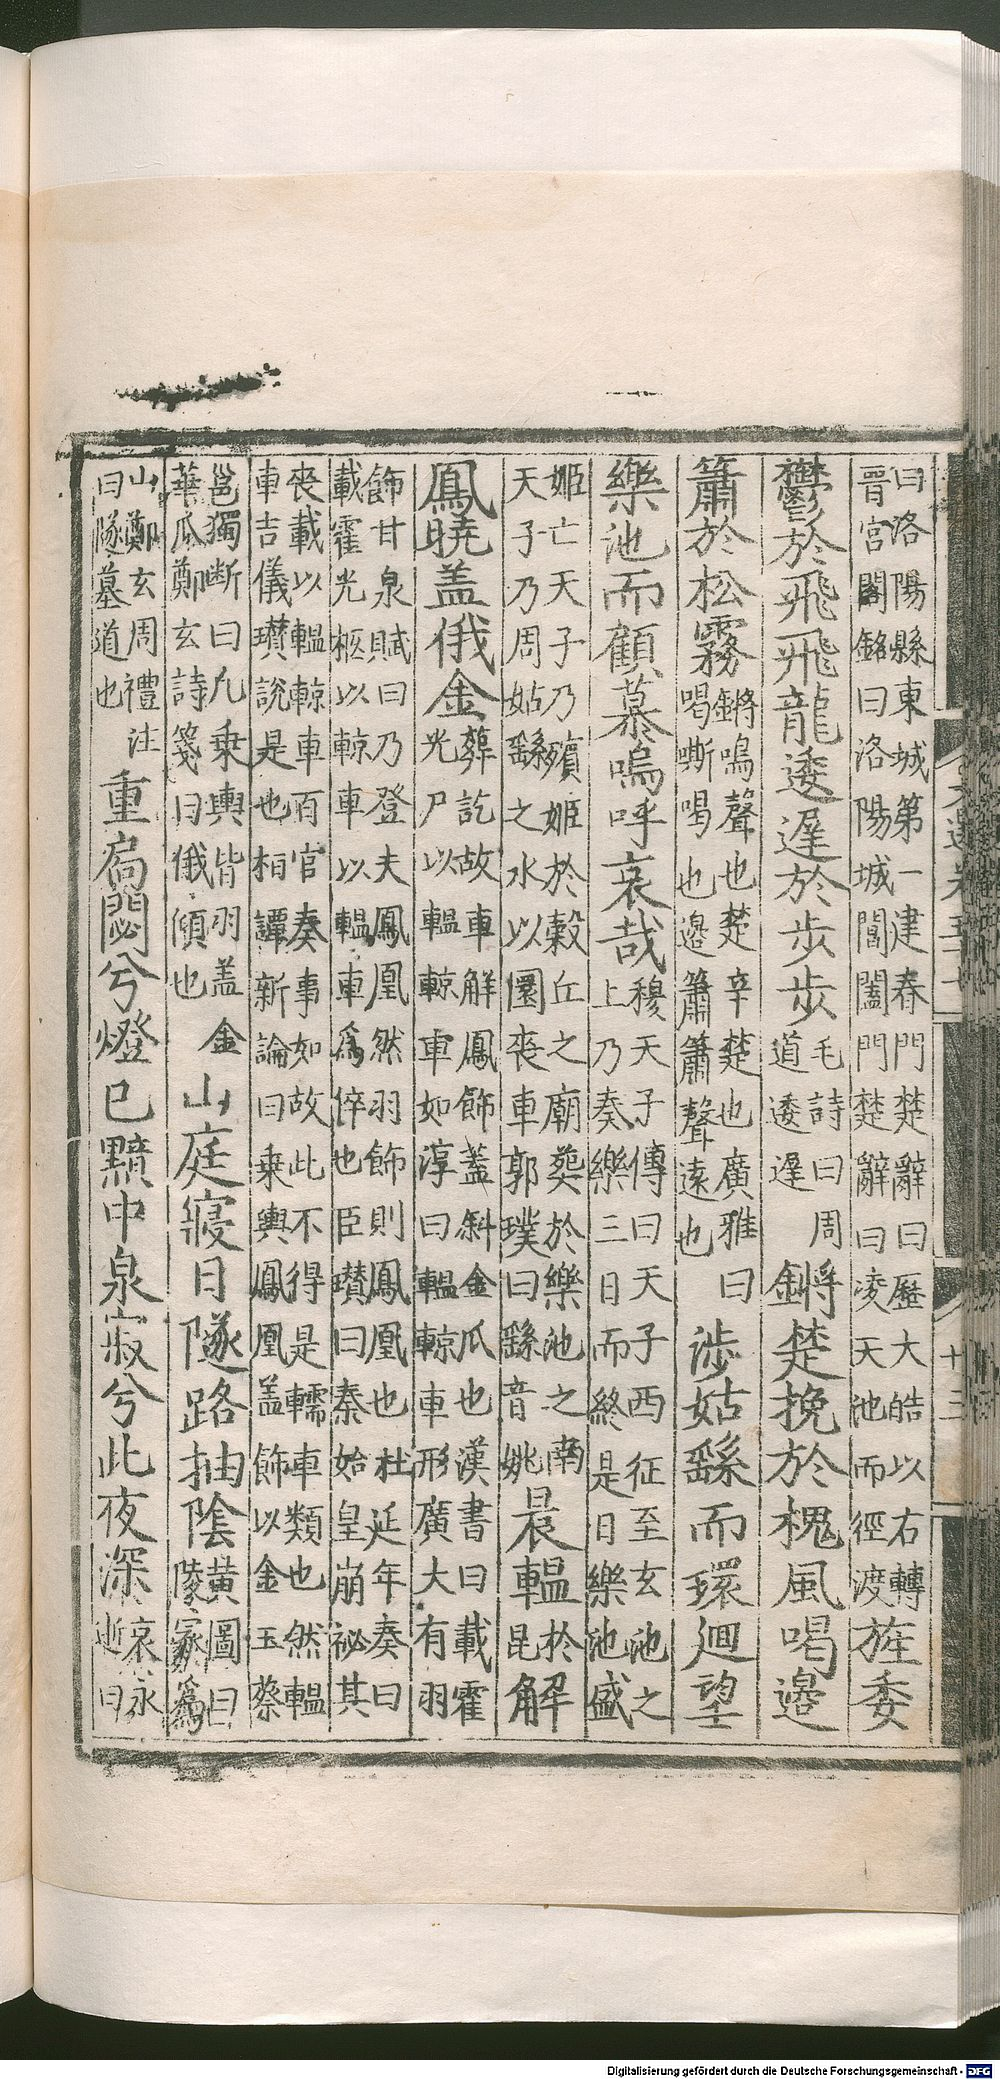 曰洛陽縣東城第一建春門楚辭曰歷大皓以右轉
晉宮閣銘曰洛陽城閶闔門楚辭曰凌天池而徑渡
旌委
鬱於飛飛龍逶遲於步步
毛詩曰周
道逶遲
鏘楚挽於槐風喝邊
簫於松霧
鏘鳴聲也楚辛楚也廣雅曰
喝嘶喝也邊簫簫聲遠也
涉姑繇而環迴望
樂池而顧慕嗚呼哀哉
穆天子傳曰天子西征至玄池之
上乃奏樂三日而終是日樂池盛
姬亡天子乃殯姬於穀丘之廟葬於樂池之南
天子乃周姑繇之水以圜喪車郭璞曰繇音姚
晨轀解
於
昆
鳳曉盖俄金
葬訖故車解鳳飾蓋斜金瓜也漢書曰載霍
光尸以轀輬車如淳曰轀輬車形廣大有羽
飾甘泉賦曰乃登夫鳳凰然羽飾則鳳凰也杜延年奏曰
載霍光柩以輬車以轀車爲倅也臣瓚曰秦始皇崩祕其
喪載以轀輬車百官奏事如故此不得是轜車類也然轀
車吉儀瓚說是也桓譚新論曰乘輿鳳凰盖飾以金玉蔡
邕獨断曰凢乗輿皆羽盖金
華瓜鄭玄詩箋曰俄傾也
山庭寢日隧路抽陰
黃圖曰
陵冢爲
山鄭玄周禮注
曰隧墓道也
重扃閟兮燈已黯中泉寂兮此夜深
哀永
逝曰
十三
Digitalisierung gefördert durch die Deutsche Forschungsgemeinschaft - DFG